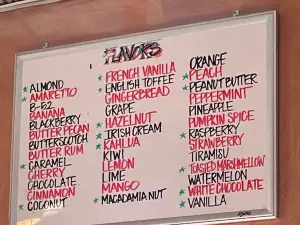 FLAVORS
ALMOND
★ AMARETTO
B-52
BANANA
BLACKBERRY
★ BUTTER PECAN
BUTTERSCOTCH
★ BUTTER RUM
★ CARAMEL
CHERRY
CHOCOLATE
★ CINNAMON
★ COCONUT
★ FRENCH VANILLA
★ ENGLISH TOFFEE
★ GINGERBREAD
GRAPE
★ HAZELNUT
★ IRISH CREAM
★ KAHLUA
KIWI
★ LEMON
LIME
MANGO
★ MACADAMIA NUT
ORANGE
★ PEACH
★ PEANUT BUTTER
PEPPERMINT
PINEAPPLE
PUMPKIN SPICE
★ RASPBERRY
★ STRAWBERRY
TIRAMISU
★ TOASTED MARSHMELLOW
WATERMELON
★ WHITE CHOCOLATE
★ VANILLA